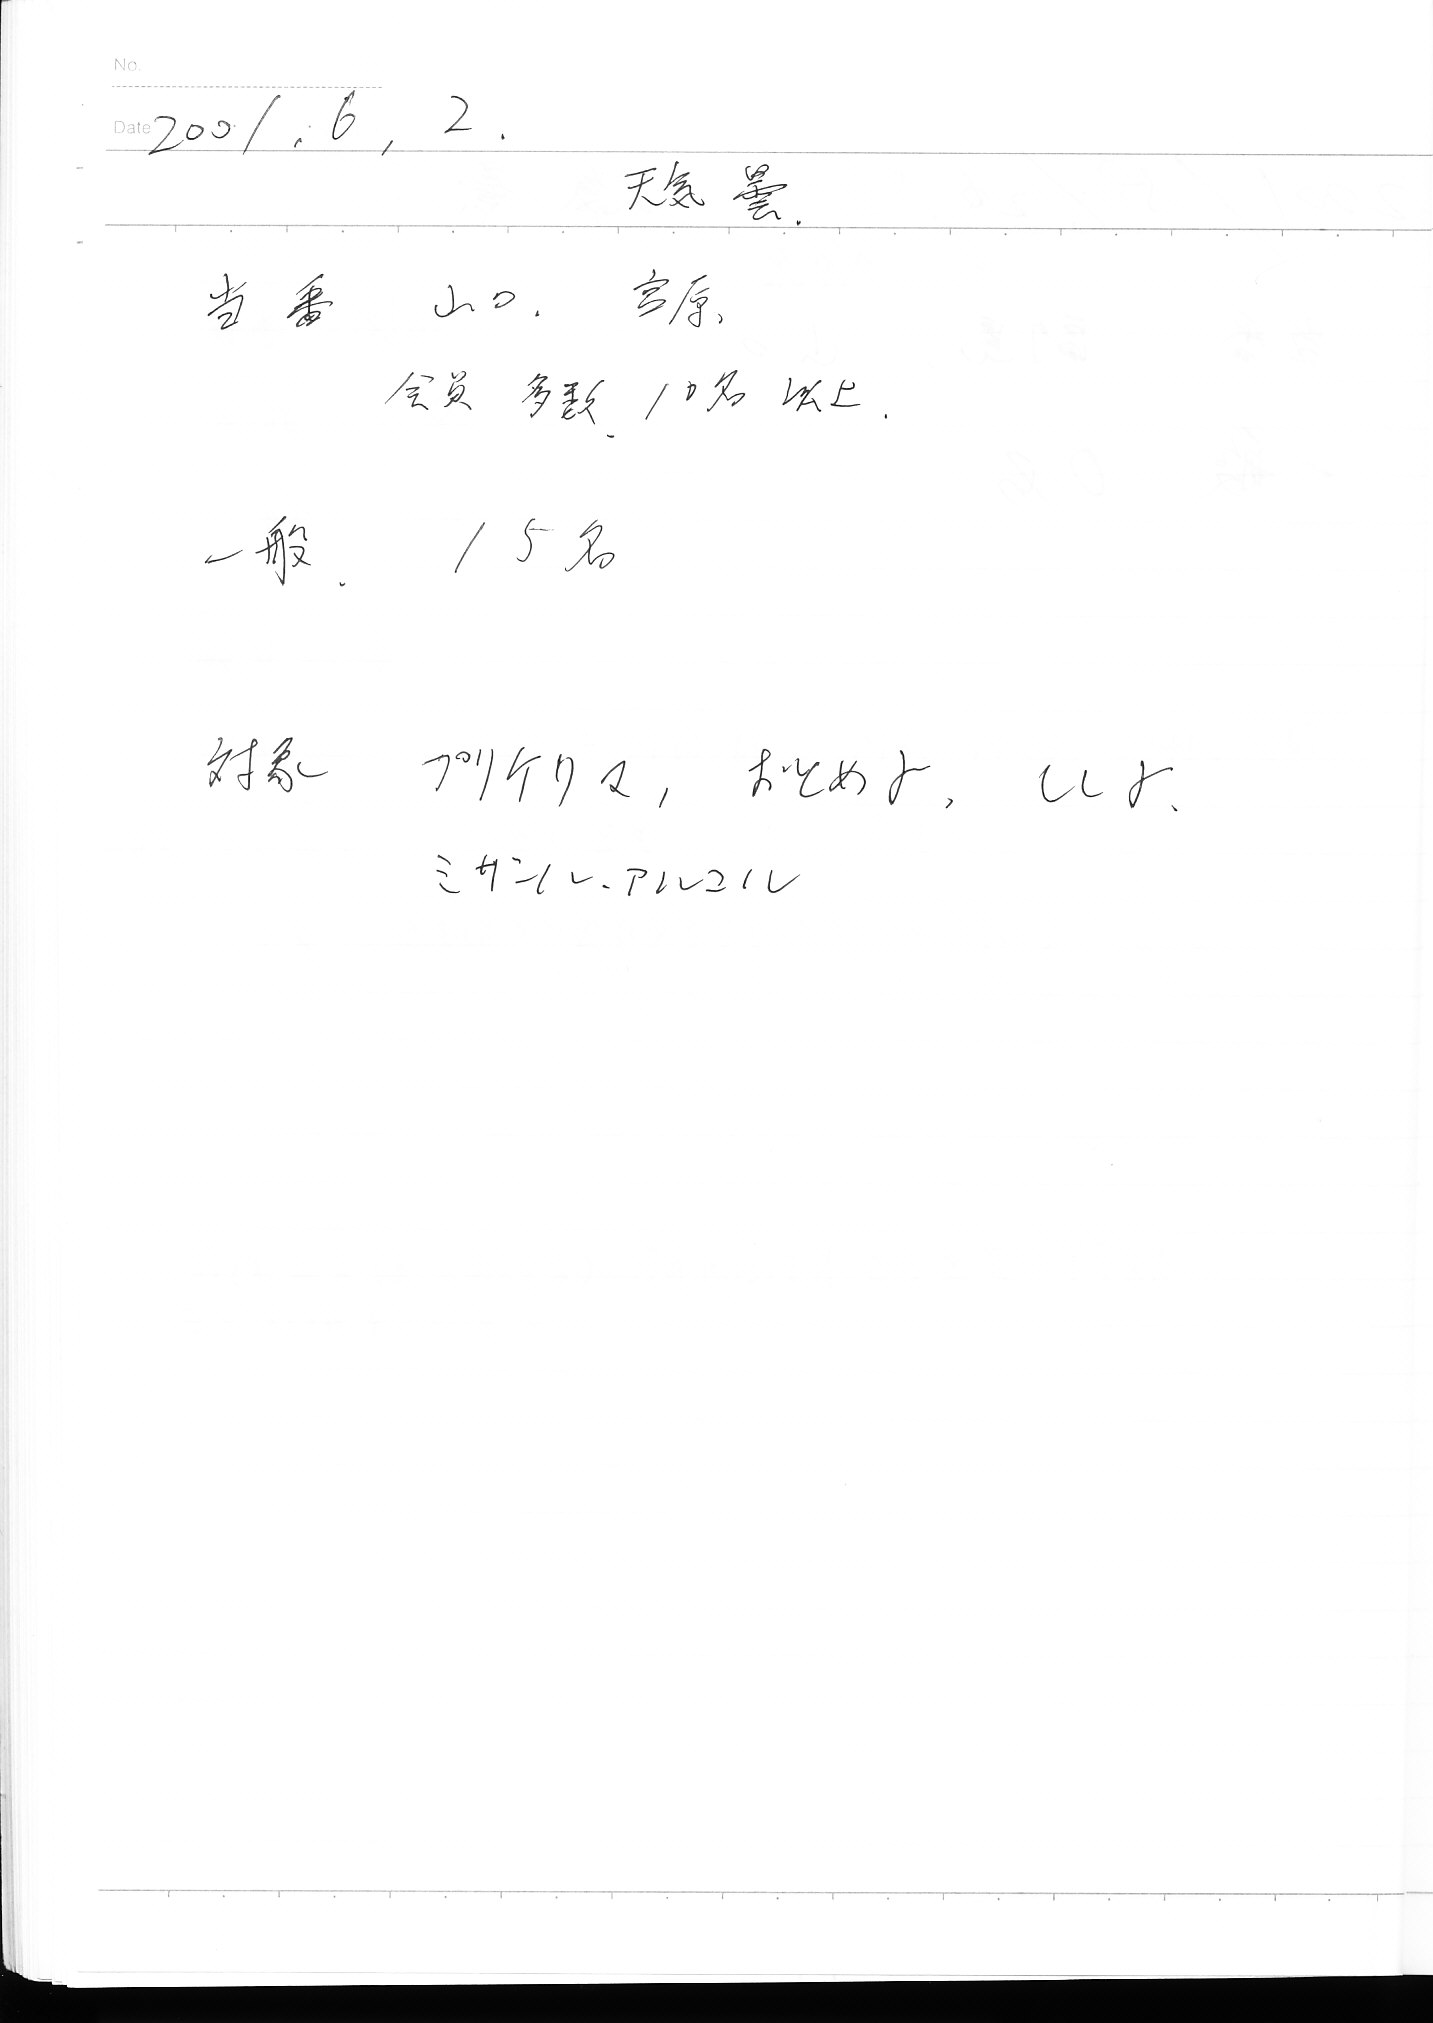 No.
Date 2001. 6, 2.
天気 曇.
当番 山口. 宮原、
会員 多数. 10名 以上.
一般. 15名
対象 プリケリマ, おとめγ, ししγ、
ミザール、アルコル